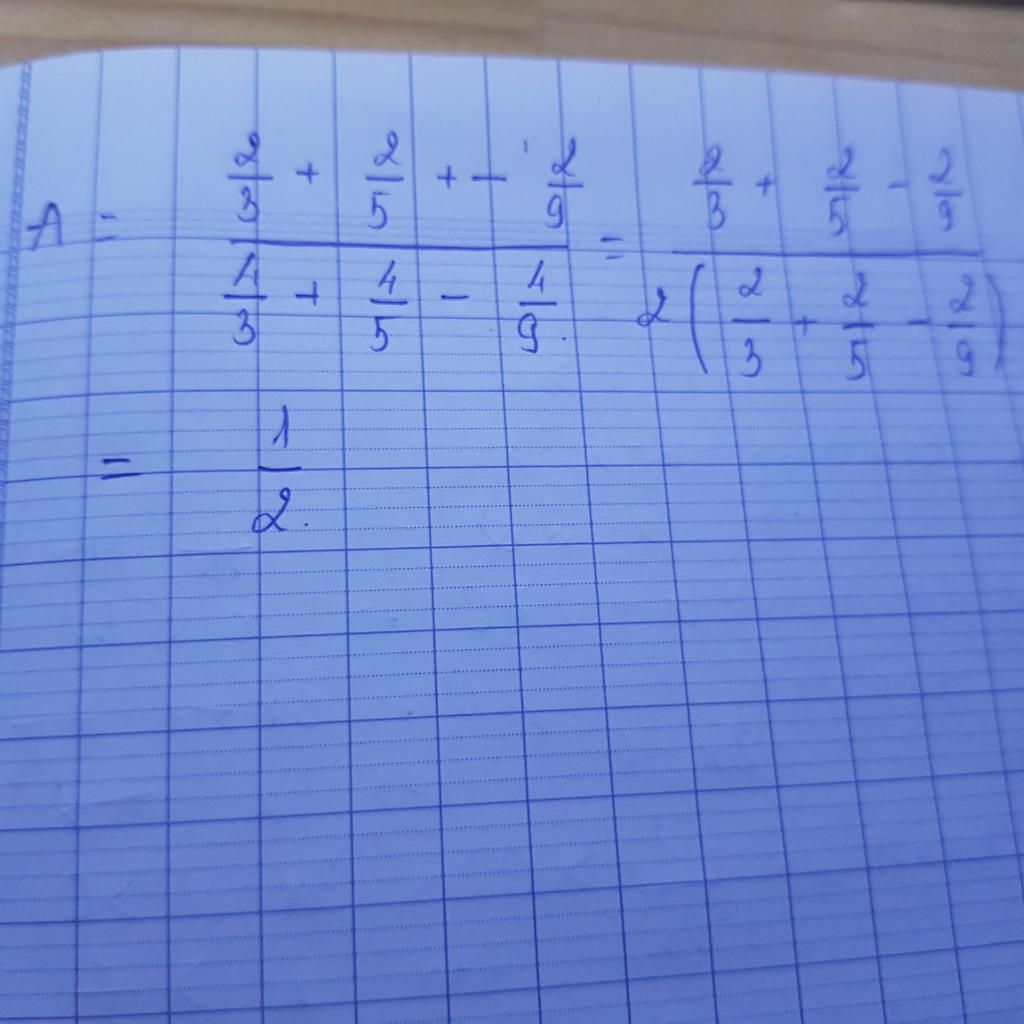 A = (2/3 + 2/5 + - 2/9) / (4/3 + 4/5 - 4/9) = (2/3 + 2/5 - 2/9) / 2(2/3 + 2/5 - 2/9)
= 1/2.